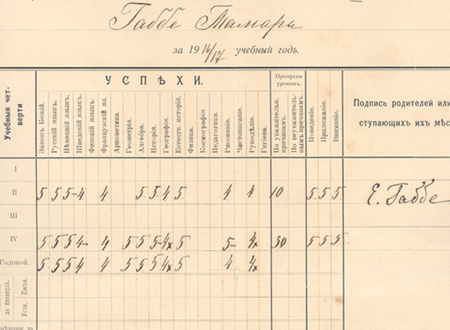 Габбе Тамары
за 1916/17 учебный годъ.
Учебныя чет-
верти.
УСПѢХИ.
Законъ Божій.
Русскій языкъ.
Нѣмецкій языкъ.
Шведскій языкъ.
Финскій языкъ.
Французскій яз.
Ариѳметика.
Геометрія.
Алгебра.
Исторія.
Географія.
Естеств. исторія.
Физика.
Космографія.
Педагогика.
Рисованіе.
Чистописаніе.
Рукодѣліе.
Гигіена.
Пропуски
уроковъ.
По уважительн.
причинамъ.
По неуважитель-
нымъ причинамъ.
Поведеніе.
Прилежаніе.
Вниманіе.
Подпись родителей или
ступающихъ ихъ мѣс
I
II 5 5 5- 4 4 5 5 4 5 4 4 10 5 5 5 Е. Габбе
III
IV 5 5 5 4- 4 5 5 5 4 5 5- 4 30 5 5 5
Годовой. 5 5 5 4 4 5 5 5 4 5 4 4